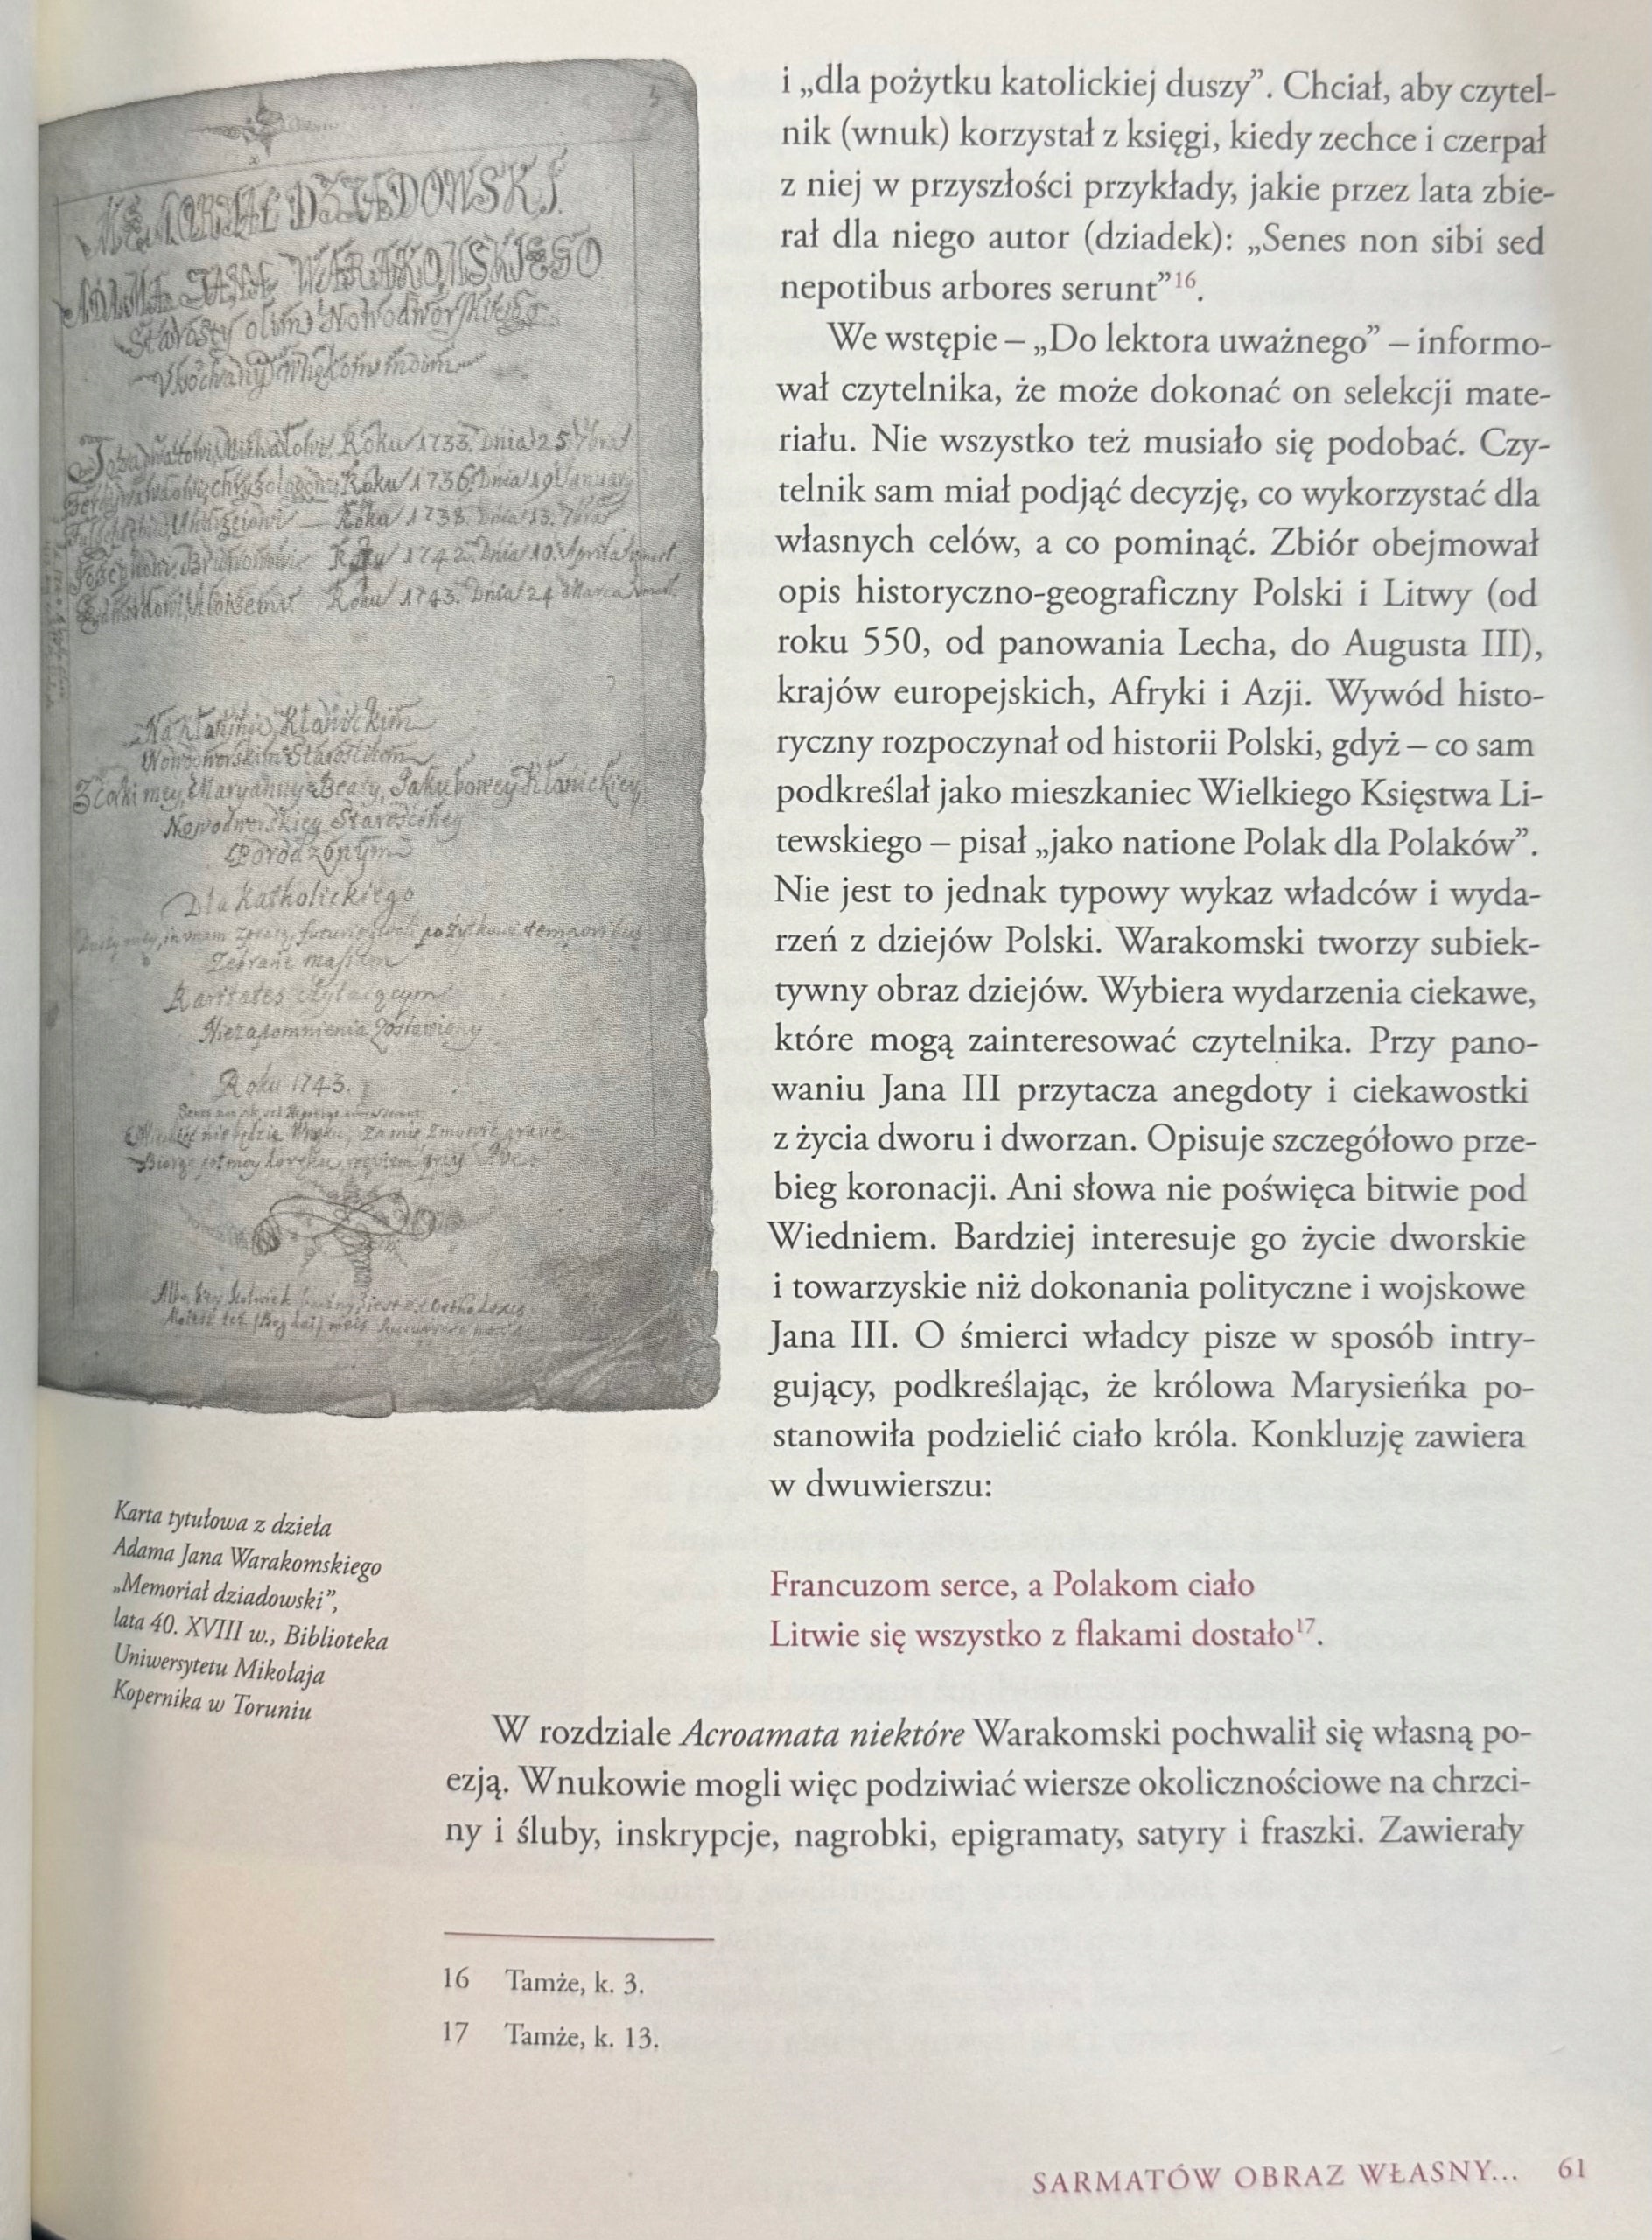 MEMORIAŁ DZIADOWSKI
ADAMA JANA WARAKOMSKIEGO
Starosty olim Nowodworskiego
Roku 1733. Dnia 25 7bra
Roku 1736. Dnia 19 January
Roku 1738. Dnia 13. 7bra
Roku 1742. Dnia 10. Aprila
Roku 1743. Dnia 24 Marca
Klonickim
Nowodworskim Starosticom
Z corki mey, Maryanny Beaty, Jakubowey Klonickiey
Nowodworskiey Starościney
Dla Katholickiego
temporibus
Zebrane
Raritates
Niezapomnienia Zostawiony
Roku 1743.
i „dla pożytku katolickiej duszy”. Chciał, aby czytel-
nik (wnuk) korzystał z księgi, kiedy zechce i czerpał
z niej w przyszłości przykłady, jakie przez lata zbie-
rał dla niego autor (dziadek): „Senes non sibi sed
nepotibus arbores serunt”16.
We wstępie – „Do lektora uważnego” – informo-
wał czytelnika, że może dokonać on selekcji mate-
riału. Nie wszystko też musiało się podobać. Czy-
telnik sam miał podjąć decyzję, co wykorzystać dla
własnych celów, a co pominąć. Zbiór obejmował
opis historyczno-geograficzny Polski i Litwy (od
roku 550, od panowania Lecha, do Augusta III),
krajów europejskich, Afryki i Azji. Wywód histo-
ryczny rozpoczynał od historii Polski, gdyż – co sam
podkreślał jako mieszkaniec Wielkiego Księstwa Li-
tewskiego – pisał „jako natione Polak dla Polaków”.
Nie jest to jednak typowy wykaz władców i wyda-
rzeń z dziejów Polski. Warakomski tworzy subiek-
tywny obraz dziejów. Wybiera wydarzenia ciekawe,
które mogą zainteresować czytelnika. Przy pano-
waniu Jana III przytacza anegdoty i ciekawostki
z życia dworu i dworzan. Opisuje szczegółowo prze-
bieg koronacji. Ani słowa nie poświęca bitwie pod
Wiedniem. Bardziej interesuje go życie dworskie
i towarzyskie niż dokonania polityczne i wojskowe
Jana III. O śmierci władcy pisze w sposób intry-
gujący, podkreślając, że królowa Marysieńka po-
stanowiła podzielić ciało króla. Konkluzję zawiera
w dwuwierszu:
Francuzom serce, a Polakom ciało
Litwie się wszystko z flakami dostało17.
Karta tytułowa z dzieła
Adama Jana Warakomskiego
„Memoriał dziadowski”,
lata 40. XVIII w., Biblioteka
Uniwersytetu Mikołaja
Kopernika w Toruniu
W rozdziale Acroamata niektóre Warakomski pochwalił się własną po-
ezją. Wnukowie mogli więc podziwiać wiersze okolicznościowe na chrzci-
ny i śluby, inskrypcje, nagrobki, epigramaty, satyry i fraszki. Zawierały
16 Tamże, k. 3.
17 Tamże, k. 13.
SARMATÓW OBRAZ WŁASNY... 61